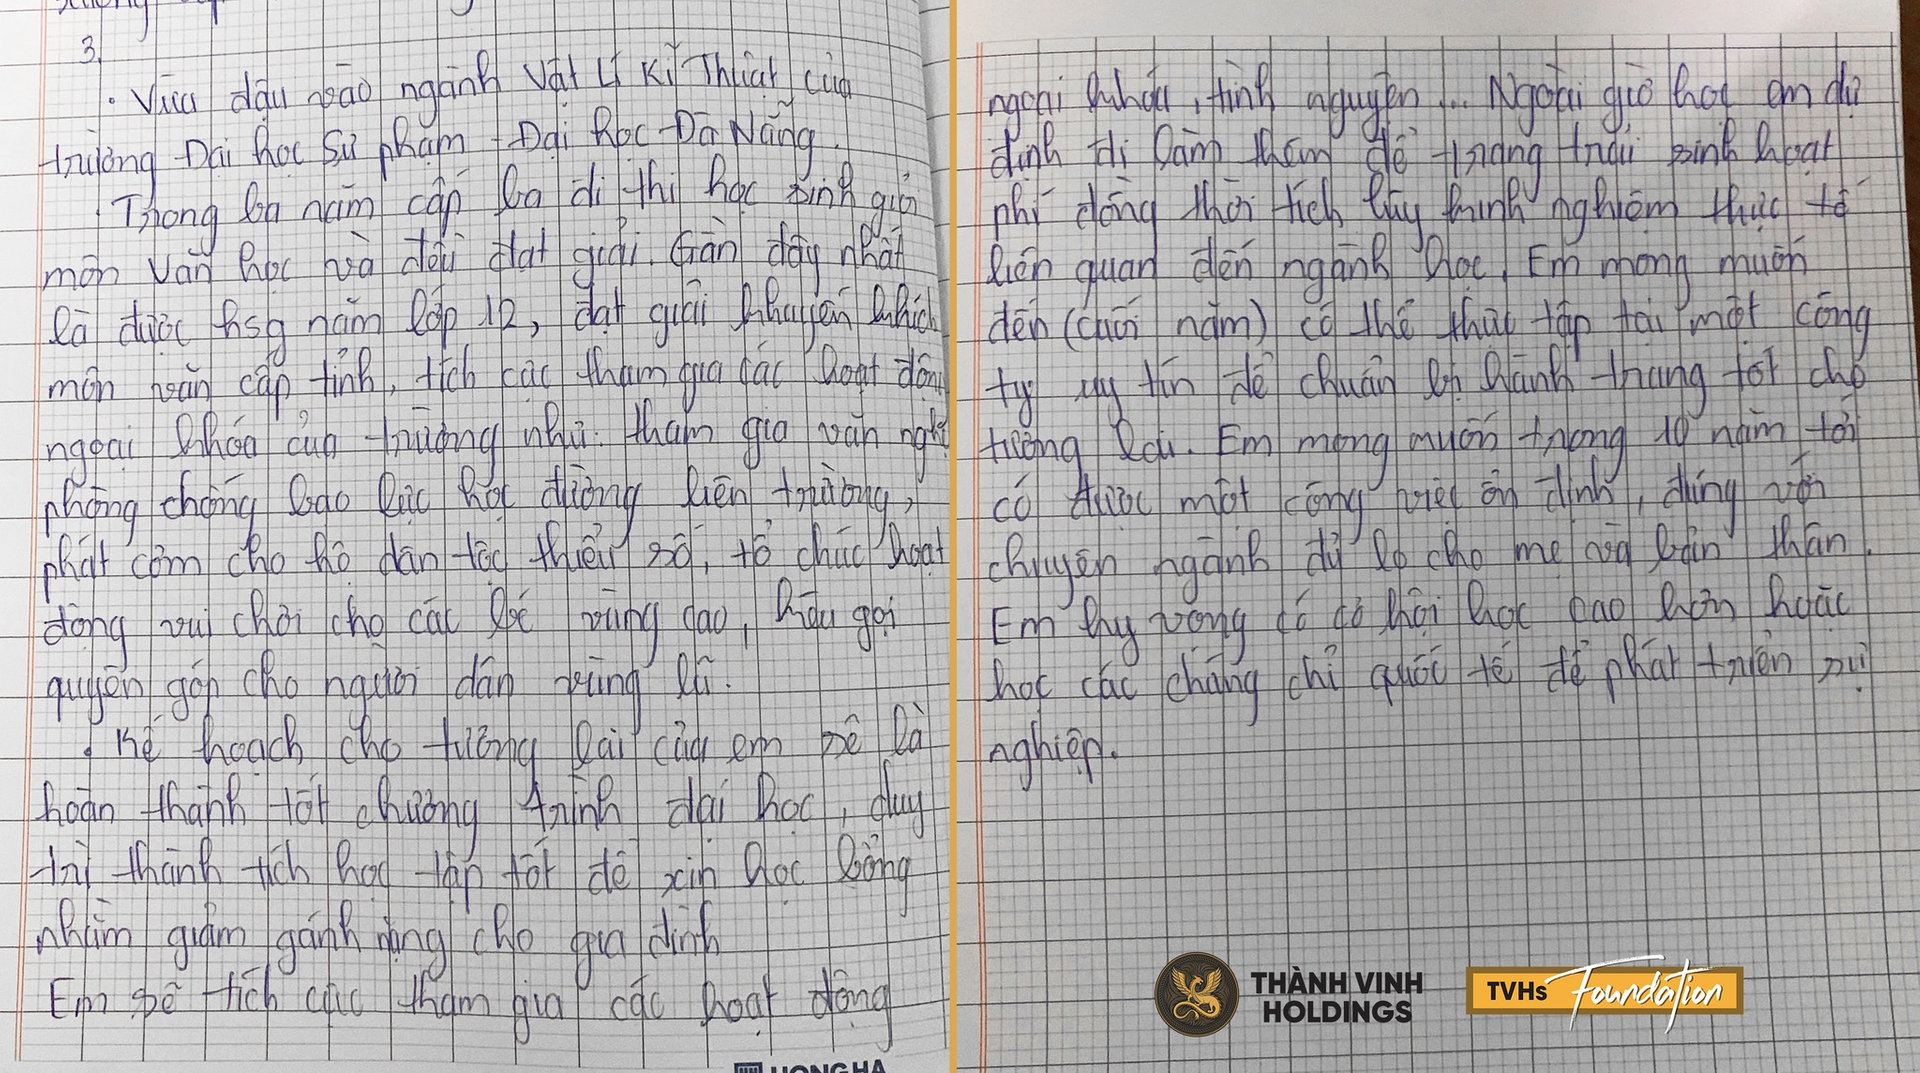 3.
• Vừa đậu vào ngành Vật Lí Kĩ Thuật của
trường Đại học Sư phạm - Đại học Đà Nẵng.
• Trong ba năm cấp ba đi thi học sinh giỏi
môn Văn học và đều đạt giải. Gần đây nhất
là được hsg năm lớp 12, đạt giải khuyến khích
môn văn cấp tỉnh, tích cực tham gia các hoạt động
ngoại khóa của trường như: tham gia văn nghệ
phòng chống bạo lực học đường liên trường,
phát cơm cho hộ dân tộc thiểu số, tổ chức hoạt
động vui chơi cho các bé vùng cao, kêu gọi
quyên góp cho người dân vùng lũ.
• Kế hoạch cho tương lai của em sẽ là
hoàn thành tốt chương trình đại học, duy
trì thành tích học tập tốt để xin học bổng
nhằm giảm gánh nặng cho gia đình
Em sẽ tích cực tham gia các hoạt động
HONG HA
ngoại khóa, tình nguyện... Ngoài giờ học em dự
định đi làm thêm để trang trải sinh hoạt
phí đồng thời tích lũy kinh nghiệm thực tế
liên quan đến ngành học. Em mong muốn
đến (cuối năm) có thể thực tập tại một công
ty uy tín để chuẩn bị hành trang tốt cho
tương lai. Em mong muốn trong 10 năm tới
có được một công việc ổn định, đúng với
chuyên ngành đủ lo cho mẹ và bản thân.
Em hy vọng có cơ hội học cao hơn hoặc
học các chứng chỉ quốc tế để phát triển sự
nghiệp.
THÀNH VINH
HOLDINGS
TVHs Foundation